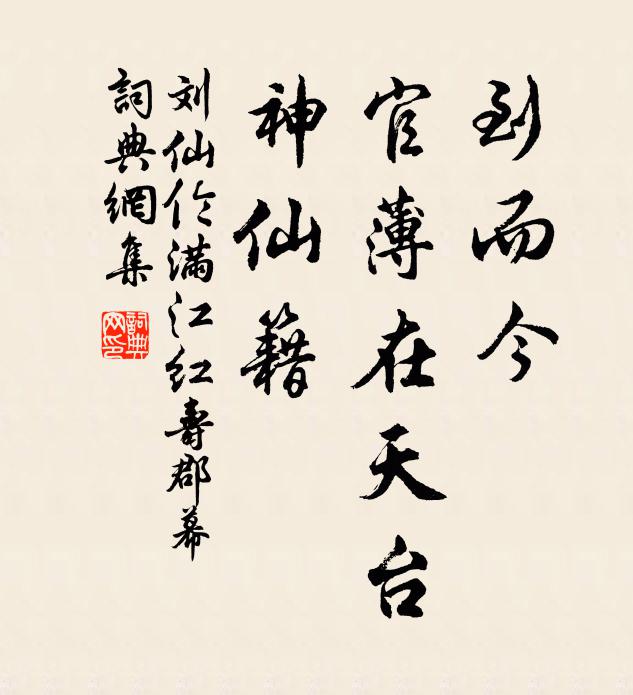 到而今
官薄在天台
神仙籍
刘仙伦满江红寿郡幕
詞典網集
詞典網印